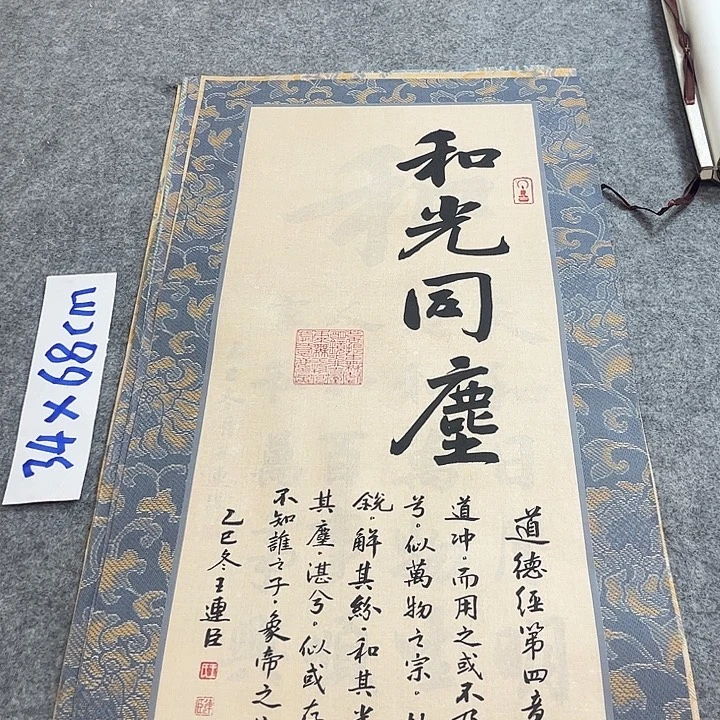 和光同塵
道德經第四章
道冲。而用之或不
兮。似萬物之宗。
銳。解其紛。和其光
其塵。湛兮。似或存
不知誰之子。象帝之
乙巳冬王連臣
34×68cm